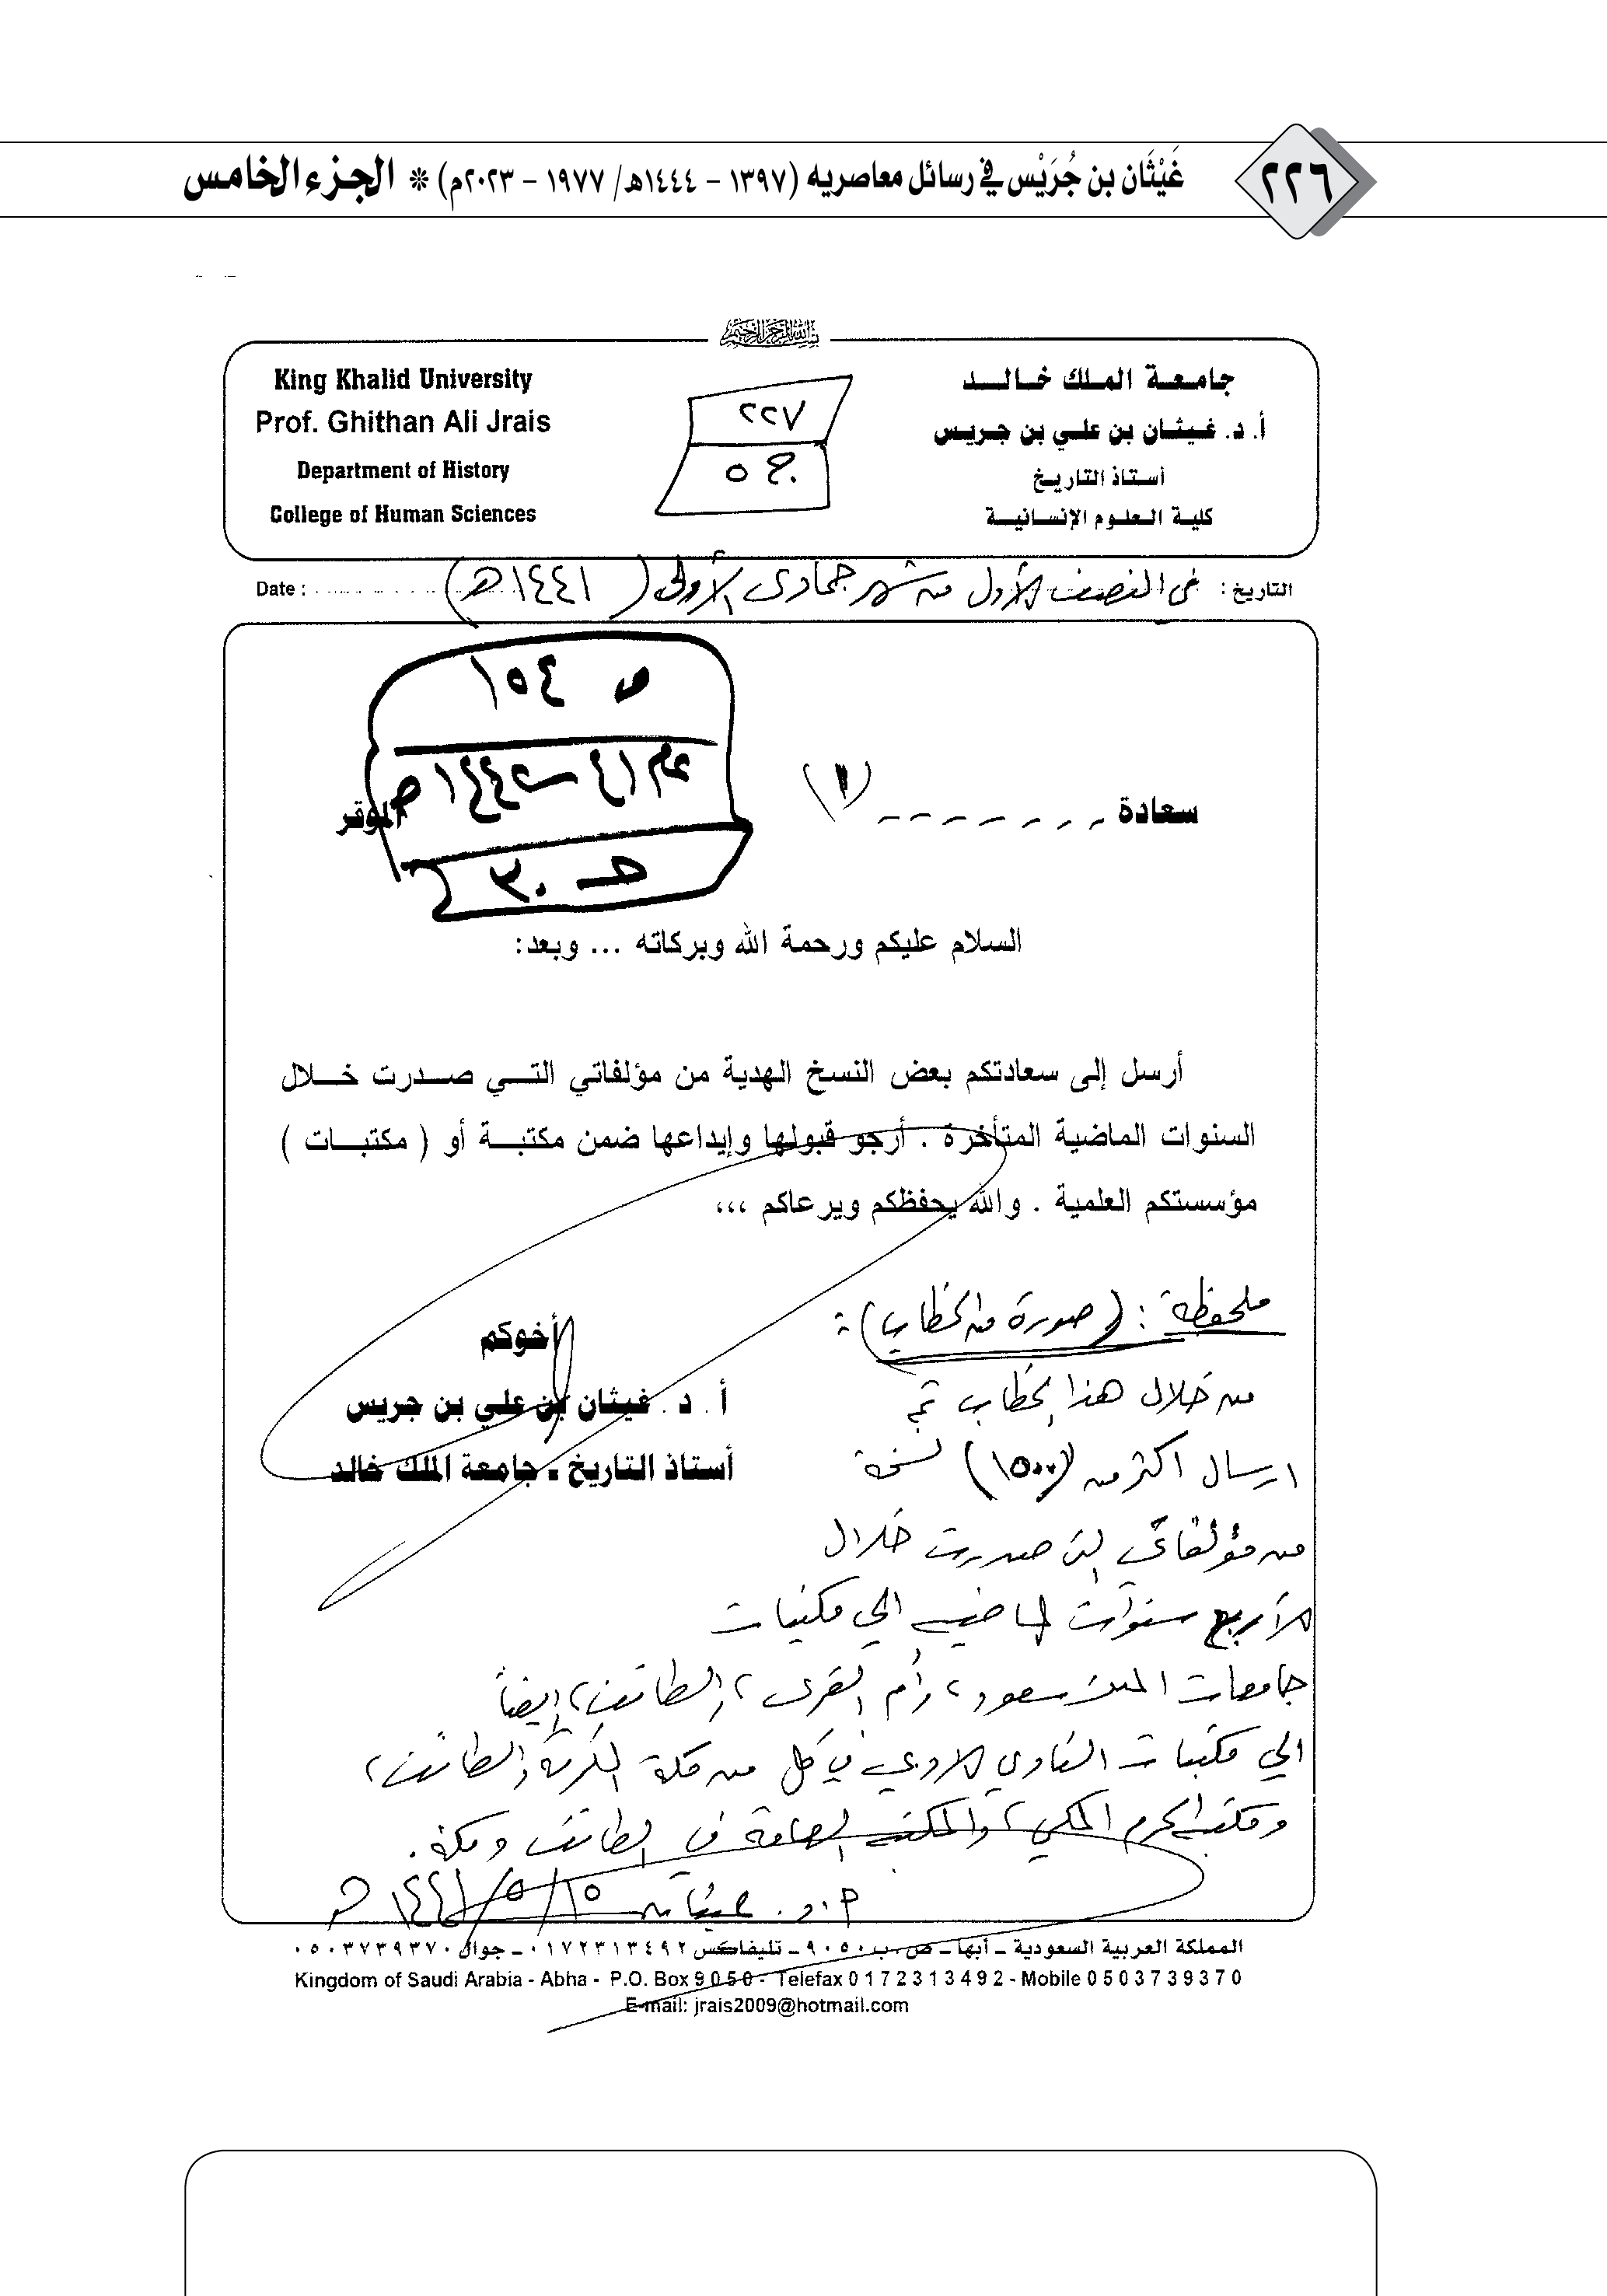 ٢٢٦
غَيْثَان بن جُرَيْس في رسائل معاصريه (١٣٩٧ - ١٤٤٤هـ/ ١٩٧٧ - ٢٠٢٣م) * الجزء الخامس
بسم الله الرحمن الرحيم
جامعة الملك خالد
أ. د. غيثان بن علي بن جريس
أستاذ التاريخ
كلية العلوم الإنسانية
٢٢٧
ج ٥
King Khalid University
Prof. Ghithan Ali Jrais
Department of History
College of Human Sciences
التاريخ : في النصف الأول من شهر جمادى الأولى (١٤٤١هـ) Date :
ص ١٥٤
عام ٤١ - ١٤٤٢هـ
سعادة (١) الموقر
السلام عليكم ورحمة الله وبركاته ... وبعد:
أرسل إلى سعادتكم بعض النسخ الهدية من مؤلفاتي التي صدرت خلال
السنوات الماضية المتأخرة . أرجو قبولها وإيداعها ضمن مكتبة أو ( مكتبات )
مؤسستكم العلمية . والله يحفظكم ويرعاكم ،،،
أخوكم
أ. د. غيثان بن علي بن جريس
أستاذ التاريخ - جامعة الملك خالد
ملحفظة : (صورة من الخطاب) :
من خلال هذا الخطاب تم
ارسال اكثر من (١٥٠٠) نسخة
من مؤلفاتي التي صدرت خلال
الأربع سنوات الماضية الى مكتبات
جامعات الملك سعود، وأم القرى، والطائف، وايضاً
الى مكتبات النادي الادبي في كل من مكة المكرمة والطائف،
ومكتبة الحرم المكي، والمكتبة العامة في الطائف ومكة.
أ.د. غيثان ١٥/٥/١٤٤١هـ
المملكة العربية السعودية - أبها - ص . ب ٩٠٥٠ - تليفاكس ٠١٧٢٣١٣٤٩٢ - جوال ٠٥٠٣٧٣٩٣٧٠
Kingdom of Saudi Arabia - Abha - P.O. Box 9 0 5 0 - Telefax 0 1 7 2 3 1 3 4 9 2 - Mobile 0 5 0 3 7 3 9 3 7 0
E-mail: jrais2009@hotmail.com